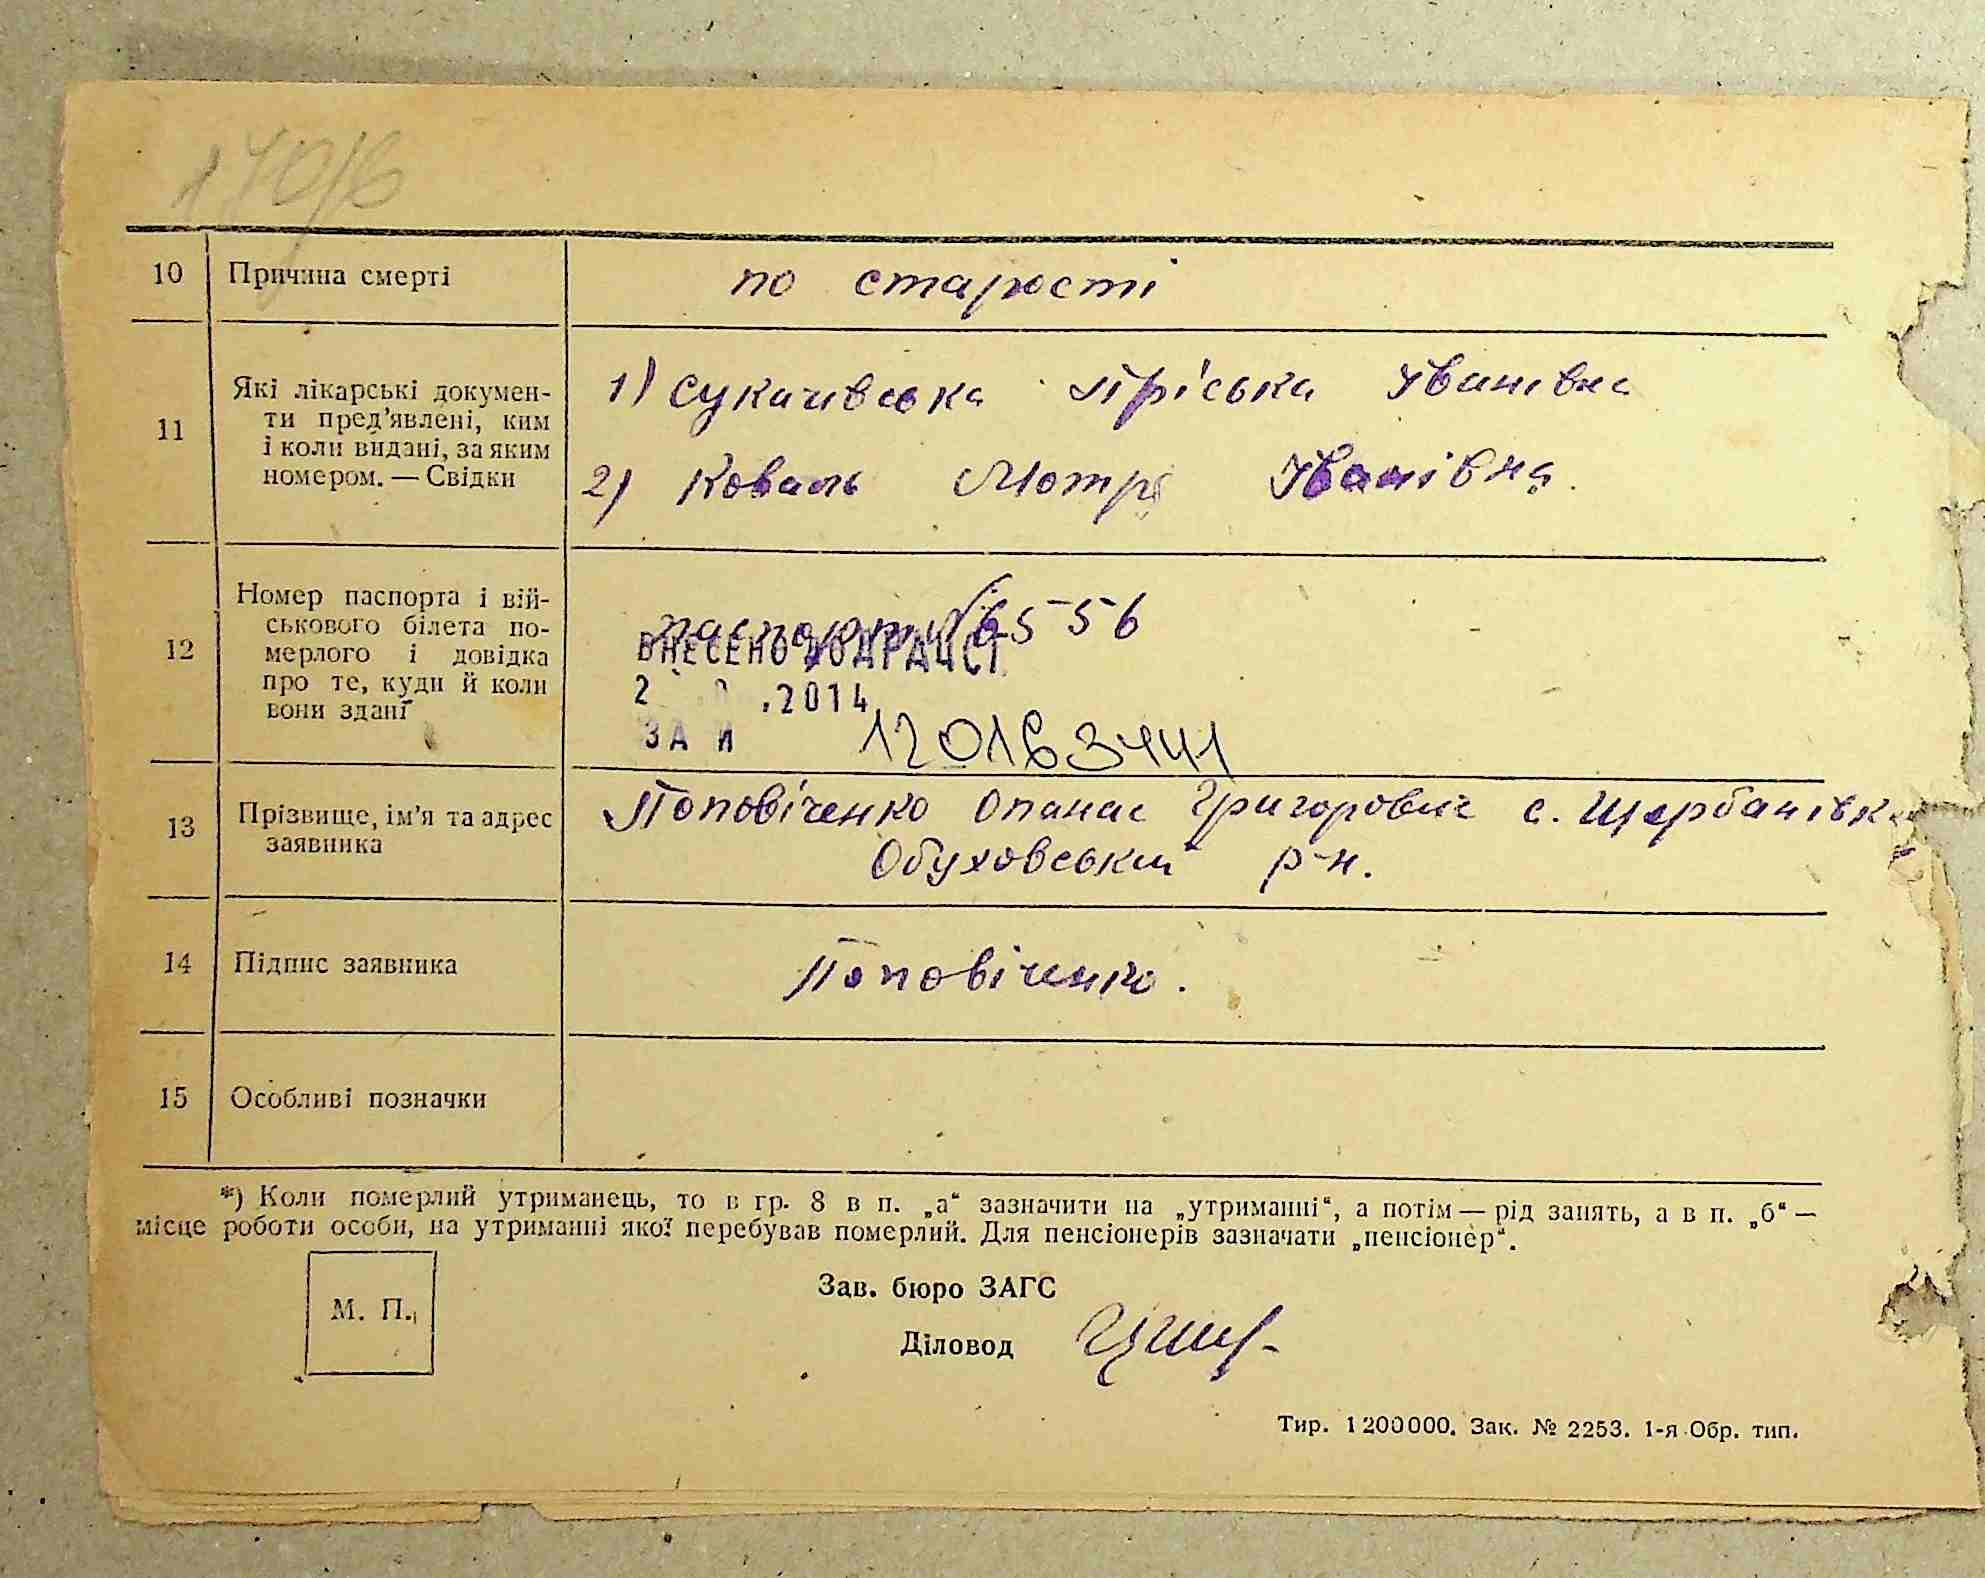 10 Причина смерті по старості
11 Які лікарські докумен-
ти пред'явлені, ким
і коли видані, за яким
номером. — Свідки
1) Сукачівська Пріська Іванівна
2) Коваль Мотря Іванівна.
12 Номер паспорта і вій-
ськового білета по-
мерлого і довідка
про те, куди й коли
вони здані
паспорт № 6556
ВНЕСЕНО ДО ДРАЦСГ
2 .2014
ЗА И 120163441
13 Прізвище, ім'я та адрес
заявника
Поповіченко Опанас Григорович с. Щербанівка
Обуховський р-н.
14 Підпис заявника Поповіченко.
15 Особливі позначки
*) Коли померлий утриманець, то в гр. 8 в п. „а“ зазначити на „утриманні“, а потім — рід занять, а в п. „б“ —
місце роботи особи, на утриманні якої перебував померлий. Для пенсіонерів зазначати „пенсіонер“.
М. П.
Зав. бюро ЗАГС
Діловод
Тир. 1200000. Зак. № 2253. 1-я Обр. тип.